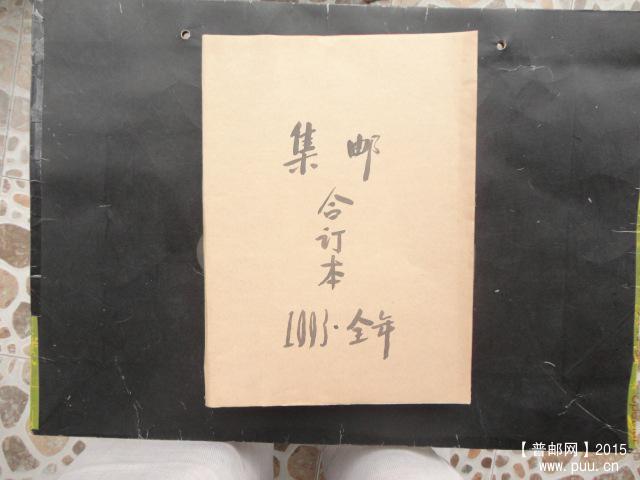 集邮
合订本
1993·全年
【普邮网】2015
www.puu.cn